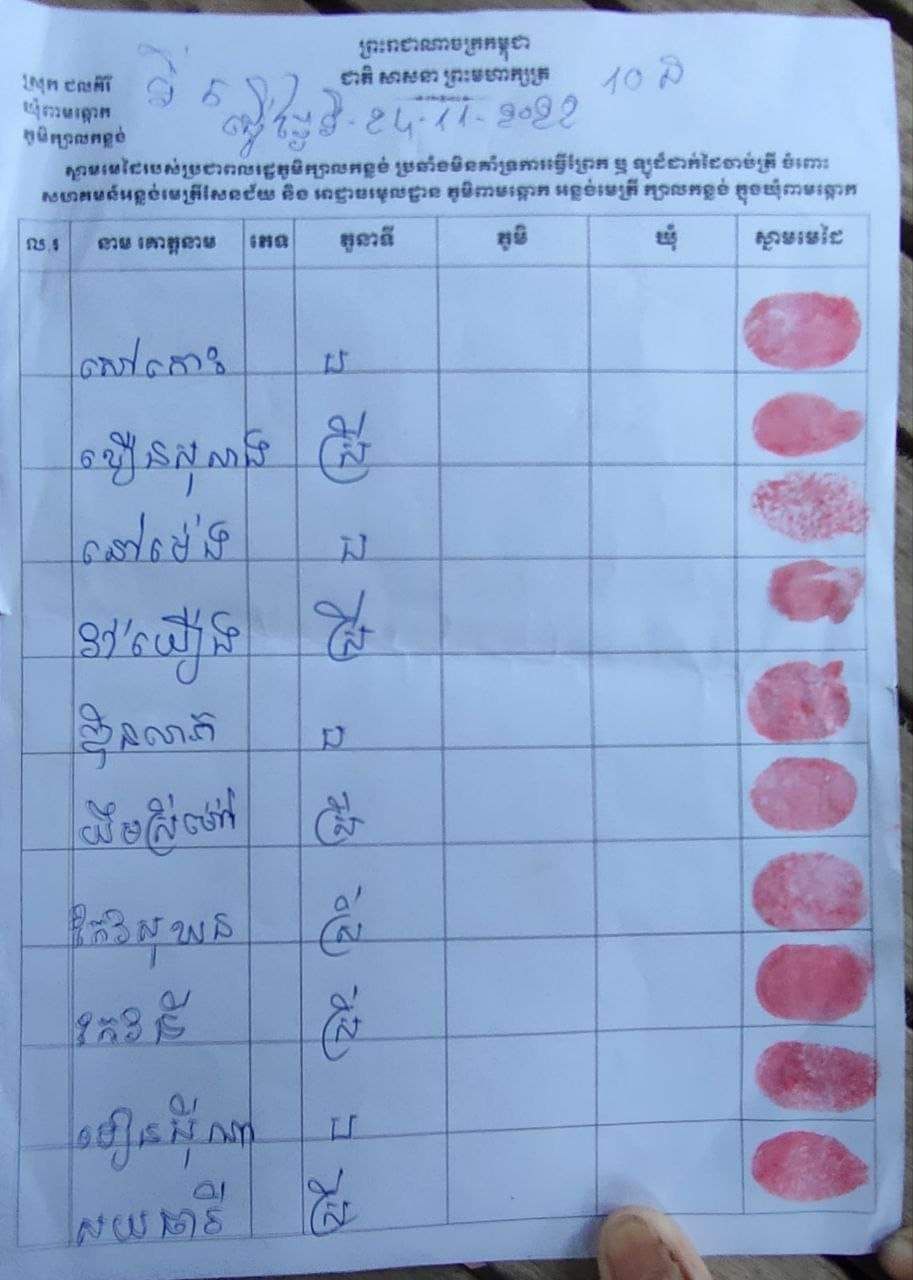 ព្រះរាជាណាចក្រកម្ពុជា
ជាតិ សាសនា ព្រះមហាក្សត្រ
10 ន
ស្រុក ជលគិរី
ឃុំពាមឆ្កោក
ភូមិក្បាលកន្លង់
ធ្វើថ្ងៃទី-24-11-2022
ស្នាមមេដៃរបស់ប្រជាពលរដ្ឋភូមិក្បាលកន្លង់ ប្រឆាំងមិនគាំទ្រការធ្វើព្រែក ឬ ឡូដ៏ដាក់ដៃចាប់ត្រី ចំពោះ
សហគមន៍អន្លង់មេត្រីសែនជ័យ និង អាជ្ញាធរមូលដ្ឋាន ភូមិពាមឆ្កោក អន្លង់មេត្រី ក្បាលកន្លង់ ក្នុងឃុំពាមឆ្កោក
ល.រ នាម គោត្តនាម ភេទ តួនាទី ភូមិ ឃុំ ស្នាមមេដៃ
សៅកោះ ប
ឃឿនសុសាង ស្រី
នៅម៉េង ប
ស្រី
ប
យឹមស្រីម៉ៅ ស្រី
កែវសុឃន ស្រី
កែវនី ស្រី
ប
សយធារី ស្រី